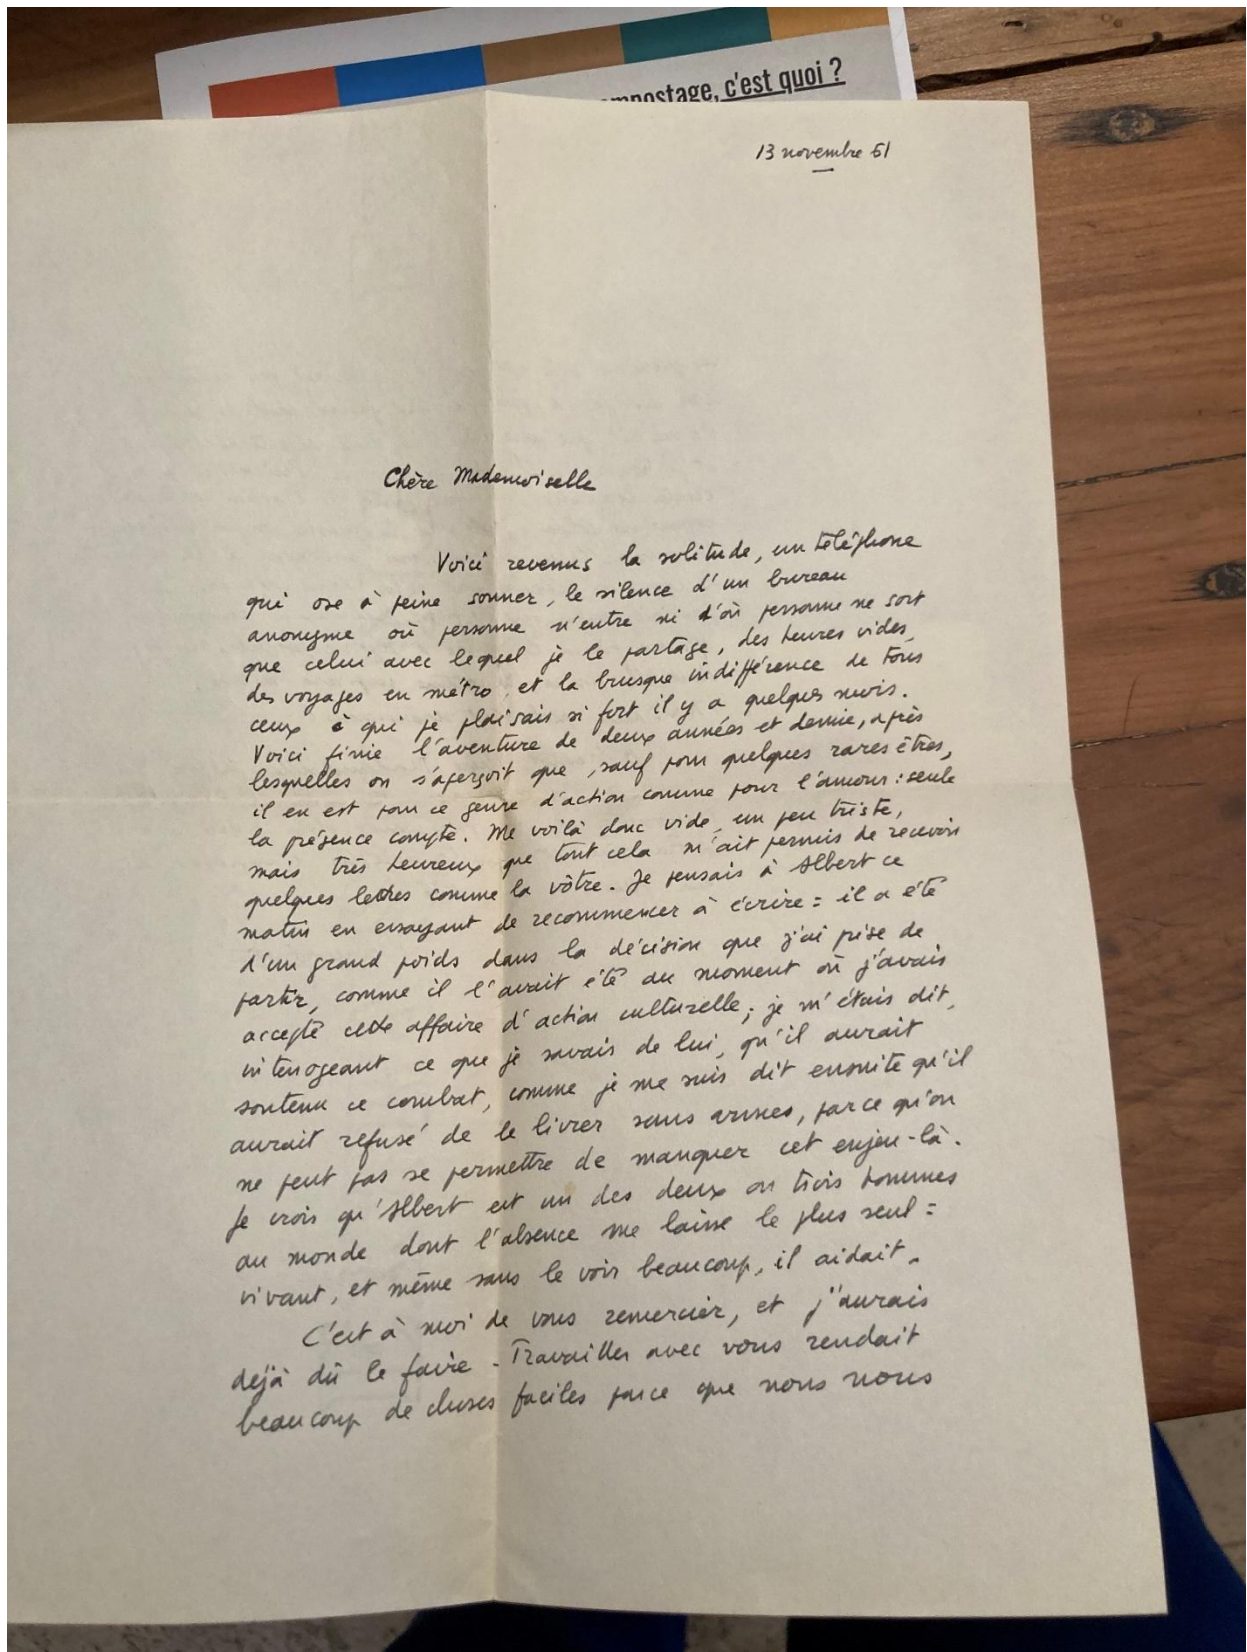 mpostage, c'est quoi ?
13 novembre 61
Chère Mademoiselle
Voici revenus la solitude, un téléphone
qui ose à peine sonner, le silence d'un bureau
anonyme où personne n'entre ni d'où personne ne sort
que celui avec lequel je le partage, des heures vides,
des voyages en métro, et la brusque indifférence de tous
ceux à qui je plaisais si fort il y a quelques mois.
Voici finie l'aventure de deux années et demie, après
lesquelles on s'aperçoit que, sauf pour quelques rares êtres,
il en est pour ce genre d'action comme pour l'amour : seule
la présence compte. Me voilà donc vide, un peu triste,
mais très heureux que tout cela m'ait permis de recevoir
quelques lettres comme la vôtre. Je pensais à Albert ce
matin en essayant de recommencer à écrire : il a été
d'un grand poids dans la décision que j'ai prise de
partir, comme il l'avait été au moment où j'avais
accepté cette affaire d'action culturelle ; je m'étais dit,
interrogeant ce que je savais de lui, qu'il aurait
soutenu ce combat, comme je me suis dit ensuite qu'il
aurait refusé de le livrer sans armes, parce qu'on
ne peut pas se permettre de manquer cet enjeu-là.
Je crois qu'Albert est un des deux ou trois hommes
au monde dont l'absence me laisse le plus seul :
vivant, et même sans le voir beaucoup, il aidait.
C'est à moi de vous remercier, et j'aurais
déjà dû le faire. Travailler avec vous rendait
beaucoup de choses faciles parce que nous nous